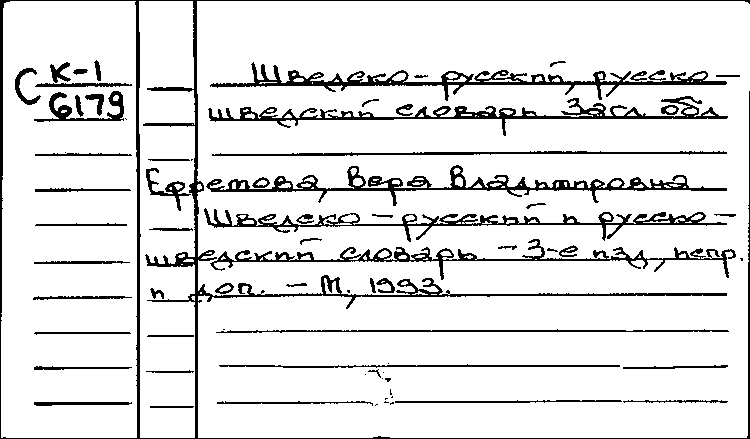 С К-1
6179
Шведско-русский, русско-
шведский словарь. Загл. обл.
Ефремова, Вера Владимировна.
Шведско-русский и русско-
шведский словарь. - 3-е изд., испр.
и доп. - М., 1993.